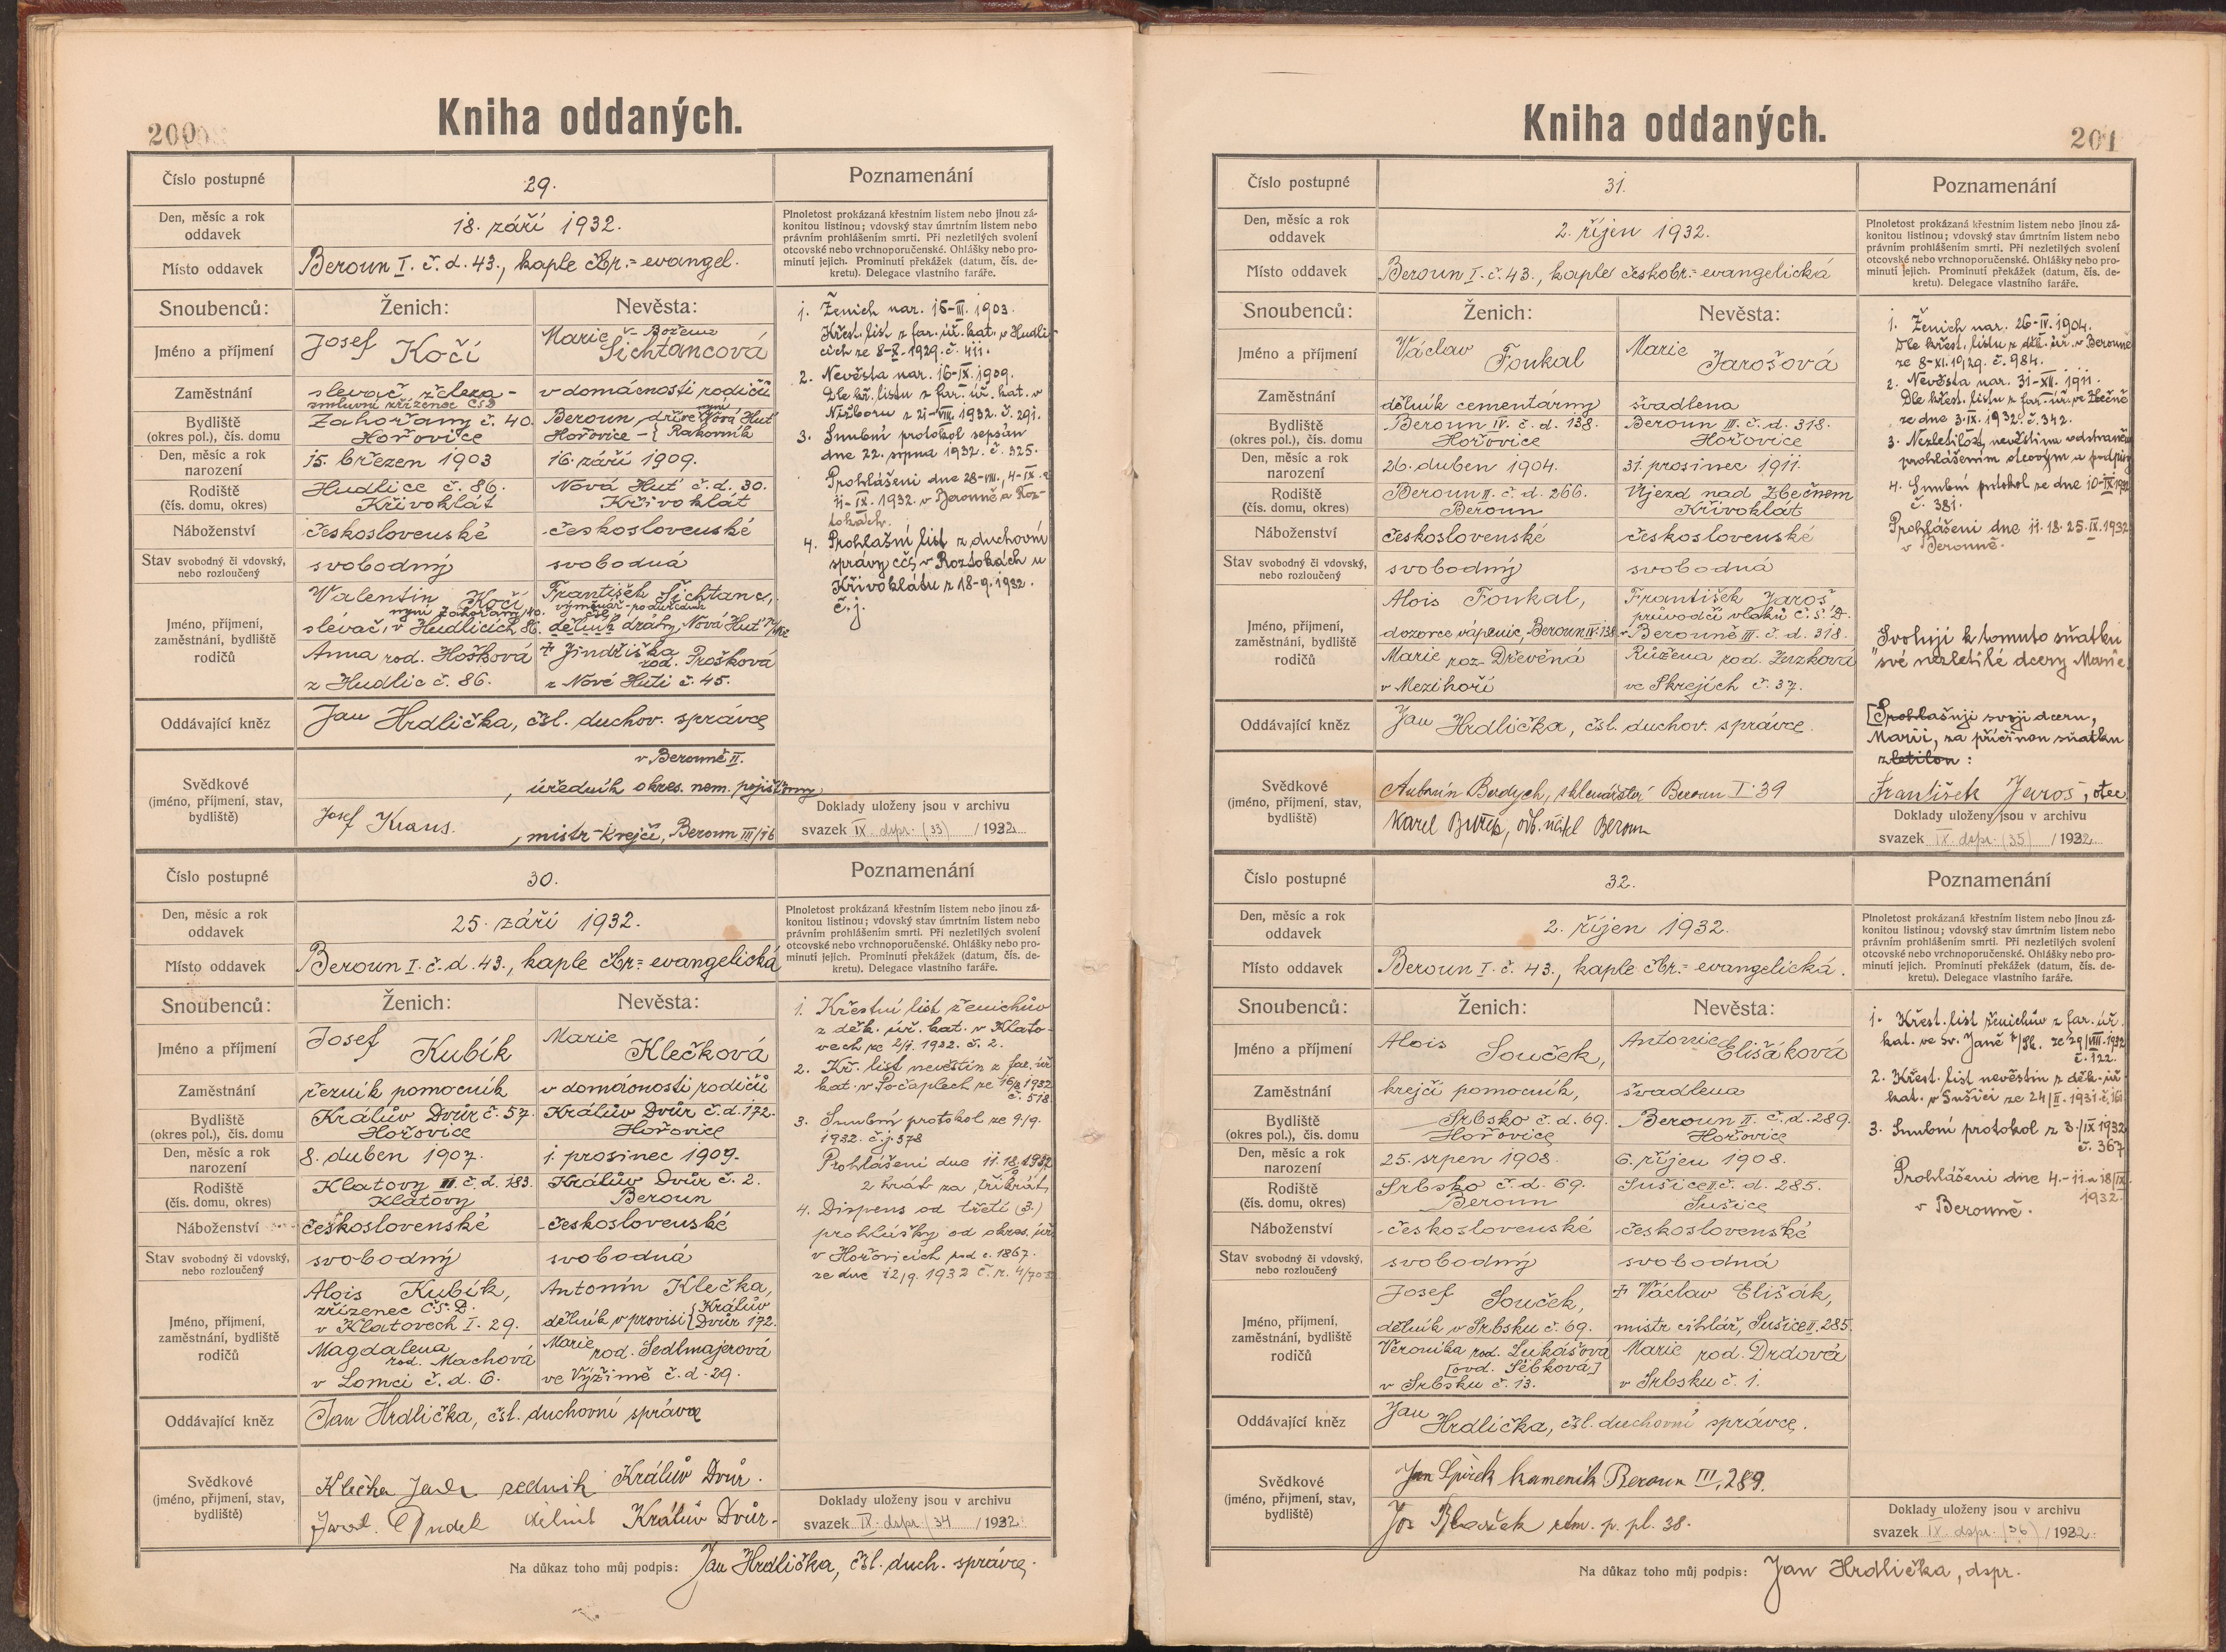 200
Kniha oddaných.
Číslo postupné
29.
Poznamenání
Den, měsíc a rok
oddavek
18. září 1932.
Plnoletost prokázaná křestním listem nebo jinou zá-
konitou listinou; vdovský stav úmrtním listem nebo
právním prohlášením smrti. Při nezletilých svolení
otcovské nebo vrchnoporučenské. Ohlášky nebo pro-
minutí jejich. Prominutí překážek (datum, čís. de-
kretu). Delegace vlastního faráře.
Místo oddavek
Beroun I. č. d. 43., kaple čbr.=evangel.
Snoubenců:
Ženich:
Nevěsta:
Jméno a příjmení
Josef
Kočí
Marie
Šichtancová
Zaměstnání
slevač železa -
smluvní zřízenec ČSD
v domácnosti rodičů
Bydliště
(okres pol.), čís. domu
Zahořany č. 40.
Hořovice
Beroun, dříve Nová Huť
Hořovice - { Rakovník
Den, měsíc a rok
narození
15. březen 1903
16. září 1909.
Rodiště
(čís. domu, okres)
Hudlice č. 86.
Křivoklát
Nová Huť č. d. 30.
Křivoklát
Náboženství
československé
československé
Stav svobodný či vdovský,
nebo rozloučený
svobodný
svobodná
Jméno, příjmení,
zaměstnání, bydliště
rodičů
Valentin Kočí
nyní Zahořany 40.
slévač, v Hudlicích 86.
Anna rod. Hošková
z Hudlic č. 86.
František Šichtanc,
dělník dráhy, Nová Huť
+ Jindřiška
rod. Prošková
z Nové Huti č. 45.
Oddávající kněz
Jan Hrdlička, čsl. duchov. správce
Svědkové
(jméno, příjmení, stav,
bydliště)
v Berouně II.
, úředník okres. nem. pojišťovny
Josef Kraus.
, mistr krejčí, Beroun III/16
1. Ženich nar. 15-III. 1903.
Křest. list z far. úř. kat. v Hudli-
cích ze 8-X-1929. č. 411.
2. Nevěsta nar. 16-IX. 1909.
Dle kř. listu z far. úř. kat. v
Nižboru z 21-VIII. 1932. č. 291.
3. Snubní protokol sepsán
dne 22. srpna 1932. č. 325.
Prohlášeni dne 28-VIII., 4-IX. a
11-IX. 1932. v Berouně a Roz-
tokách.
4. Prohlašní list z duchovní
správy cčs, v Roztokách u
Křivoklátu z 18-9. 1932.
č. j.
Doklady uloženy jsou v archivu
svazek IX. dspr. (33) / 1932
Číslo postupné
30.
Poznamenání
Den, měsíc a rok
oddavek
25. září 1932.
Plnoletost prokázaná křestním listem nebo jinou zá-
konitou listinou; vdovský stav úmrtním listem nebo
právním prohlášením smrti. Při nezletilých svolení
otcovské nebo vrchnoporučenské. Ohlášky nebo pro-
minutí jejich. Prominutí překážek (datum, čís. de-
kretu). Delegace vlastního faráře.
Místo oddavek
Beroun I. č. d. 43., kaple čbr.=evangelická
Snoubenců:
Ženich:
Nevěsta:
Jméno a příjmení
Josef
Kubík
Marie
Klečková
Zaměstnání
řezník pomocník
v domácnosti rodičů
Bydliště
(okres pol.), čís. domu
Králův Dvůr č. 57.
Hořovice
Králův Dvůr č. d. 172.
Hořovice
Den, měsíc a rok
narození
8. duben 1907.
1. prosinec 1909.
Rodiště
(čís. domu, okres)
Klatovy III. č. d. 183.
Klatovy
Králův Dvůr č. 2.
Beroun
Náboženství
československé
československé
Stav svobodný či vdovský,
nebo rozloučený
svobodný
svobodná
Jméno, příjmení,
zaměstnání, bydliště
rodičů
Alois Kubík,
zřízenec ČSD.
v Klatovech I. 29.
Magdalena
rod. Machová
v Lomci č. d. 6.
Antonín Klečka,
dělník v provisi { Králův
Dvůr 172.
Marie rod. Sedlmajerová
ve Výžimě č. d. 29.
Oddávající kněz
Jan Hrdlička, čsl. duchovní správce
Svědkové
(jméno, příjmení, stav,
bydliště)
Klečka zedník Králův Dvůr.
dělník Králův Dvůr.
1. Křestní list ženichův
z děk. úř. kat. v Klato-
vech ze 2/7. 1922. č. 2.
2. Kř. list nevěstin z far. úř.
kat. v Počaplech ze 1932
č. 518
3. Snubní protokol ze 9/9.
1932. č. j. 378
Prohlášeni dne 11. 18. 1932
2 krát za třikrát
4. Dispens od třetí (3.)
prohlášky od okres. úřa
v Hořovicích pod č. 1867.
ze dne 12/9. 1932
Doklady uloženy jsou v archivu
svazek IX. dspr. (34 / 1932
Na důkaz toho můj podpis: Jan Hrdlička, čsl. duch. správce,
201
Kniha oddaných.
Číslo postupné
31.
Poznamenání
Den, měsíc a rok
oddavek
2. říjen 1932.
Plnoletost prokázaná křestním listem nebo jinou zá-
konitou listinou; vdovský stav úmrtním listem nebo
právním prohlášením smrti. Při nezletilých svolení
otcovské nebo vrchnoporučenské. Ohlášky nebo pro-
minutí jejich. Prominutí překážek (datum, čís. de-
kretu). Delegace vlastního faráře.
Místo oddavek
Beroun I. č. 43., kaple českobr.=evangelická
Snoubenců:
Ženich:
Nevěsta:
Jméno a příjmení
Václav
Foukal
Marie
Jarošová
Zaměstnání
dělník cementárny
švadlena
Bydliště
(okres pol.), čís. domu
Beroun IV. č. d. 138.
Hořovice
Beroun III. č. d. 318.
Hořovice
Den, měsíc a rok
narození
26. duben 1904.
31. prosinec 1911.
Rodiště
(čís. domu, okres)
Beroun II. č. d. 266.
Beroun
Újezd nad Zbečnem
Křivoklát
Náboženství
československé
československé
Stav svobodný či vdovský,
nebo rozloučený
svobodný
svobodná
Jméno, příjmení,
zaměstnání, bydliště
rodičů
Alois Foukal,
dozorce vápenic, Beroun IV. 138
Marie roz. Dřevěná
v Mezihoří
František Jaroš
průvodčí vlaků Č.S.D.
v Berouně III. č. d. 318.
Růžena rod. Zuzková
ve Skrejích č. 37.
Oddávající kněz
Jan Hrdlička, čsl. duchov. správce.
Svědkové
(jméno, příjmení, stav,
bydliště)
Antonín Berdych, sklenářství Beroun I. 39
Karel Bureš, odb. učitel Beroun
1. Ženich nar. 26-IV. 1904.
Dle křest. listu z děk. úř. v Berouně
ze 8-XI. 1929. č. 984.
2. Nevěsta nar. 31-XII. 1911.
Dle křest. listu z far. úř. ve Zbečně
ze dne 3-IX. 1932. č. 342.
3. Nezletilost nevěstina odstraněna
prohlášením otcovým a podpisy
4. Snubní protokol ze dne 10-IX 1932
č. 381.
Prohlášeni dne 11. 18. 25. IX. 1932
v Berouně.
Svoluji k tomuto sňatku
své nezletilé dcery Marie.
[Prohlašuji svoji dceru,
Marii, za příčinou sňatku
zletilou :
František Jaroš, otec.
Doklady uloženy jsou v archivu
svazek IX. dspr. (35) / 1932
Číslo postupné
32.
Poznamenání
Den, měsíc a rok
oddavek
2. říjen 1932.
Plnoletost prokázaná křestním listem nebo jinou zá-
konitou listinou; vdovský stav úmrtním listem nebo
právním prohlášením smrti. Při nezletilých svolení
otcovské nebo vrchnoporučenské. Ohlášky nebo pro-
minutí jejich. Prominutí překážek (datum, čís. de-
kretu). Delegace vlastního faráře.
Místo oddavek
Beroun I. č. 43., kaple čbr.=evangelická.
Snoubenců:
Ženich:
Nevěsta:
Jméno a příjmení
Alois
Souček,
Antonie
Elišáková
Zaměstnání
krejčí pomocník,
švadlena
Bydliště
(okres pol.), čís. domu
Srbsko č. d. 69.
Hořovice
Beroun II. č. d. 289.
Hořovice
Den, měsíc a rok
narození
25. srpen 1908.
6. říjen 1908.
Rodiště
(čís. domu, okres)
Srbsko č. d. 69.
Beroun
Sušice II. č. d. 285.
Sušice
Náboženství
československé
československé
Stav svobodný či vdovský,
nebo rozloučený
svobodný
svobodná
Jméno, příjmení,
zaměstnání, bydliště
rodičů
Josef Souček,
dělník v Srbsku č. 69.
Veronika rod. Lukášová
[ovd. Sébková]
v Srbsku č. 13.
+ Václav Elišák,
mistr cihlář, Sušice II. 285.
Marie rod. Drdová
v Srbsku č. 1.
Oddávající kněz
Jan Hrdlička, čsl. duchovní správce.
Svědkové
(jméno, příjmení, stav,
bydliště)
Jan kameník Beroun III, 289.
Jos p. pl. 38.
1. Křest. list ženichův z far. úř.
kat. ve Sv. Janě p/Sk. ze 29/VIII. 1932
č. 122.
2. Křest. list nevěstin z děk. úř.
kat. v Sušici ze 24/II. 1931.
3. Snubní protokol z 3./IX 1932
č. 367
Prohlášeni dne 4.-11. a 18/IX.
1932.
v Berouně.
Doklady uloženy jsou v archivu
svazek IX. dspr. (36) / 1932
Na důkaz toho můj podpis: Jan Hrdlička, dspr.